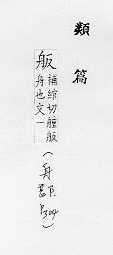 類篇
舨
補綰切艫舨
舟也文一
(舟部
P.304)